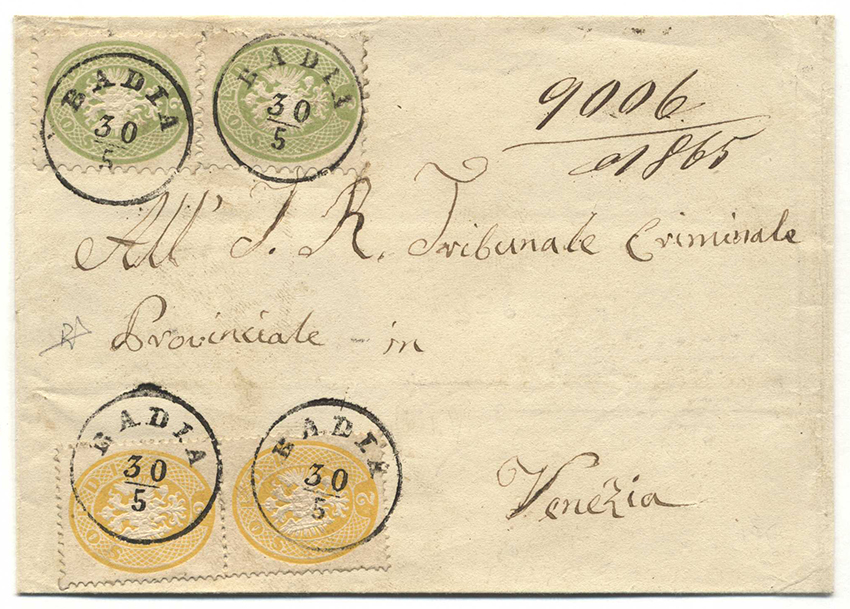 BADIA
30
5
BADIA
30
5
9006
1865
All' I. R. Tribunale Criminale
Provinciale - in
BADIA
30
5
BADIA
30
5
2
Venezia